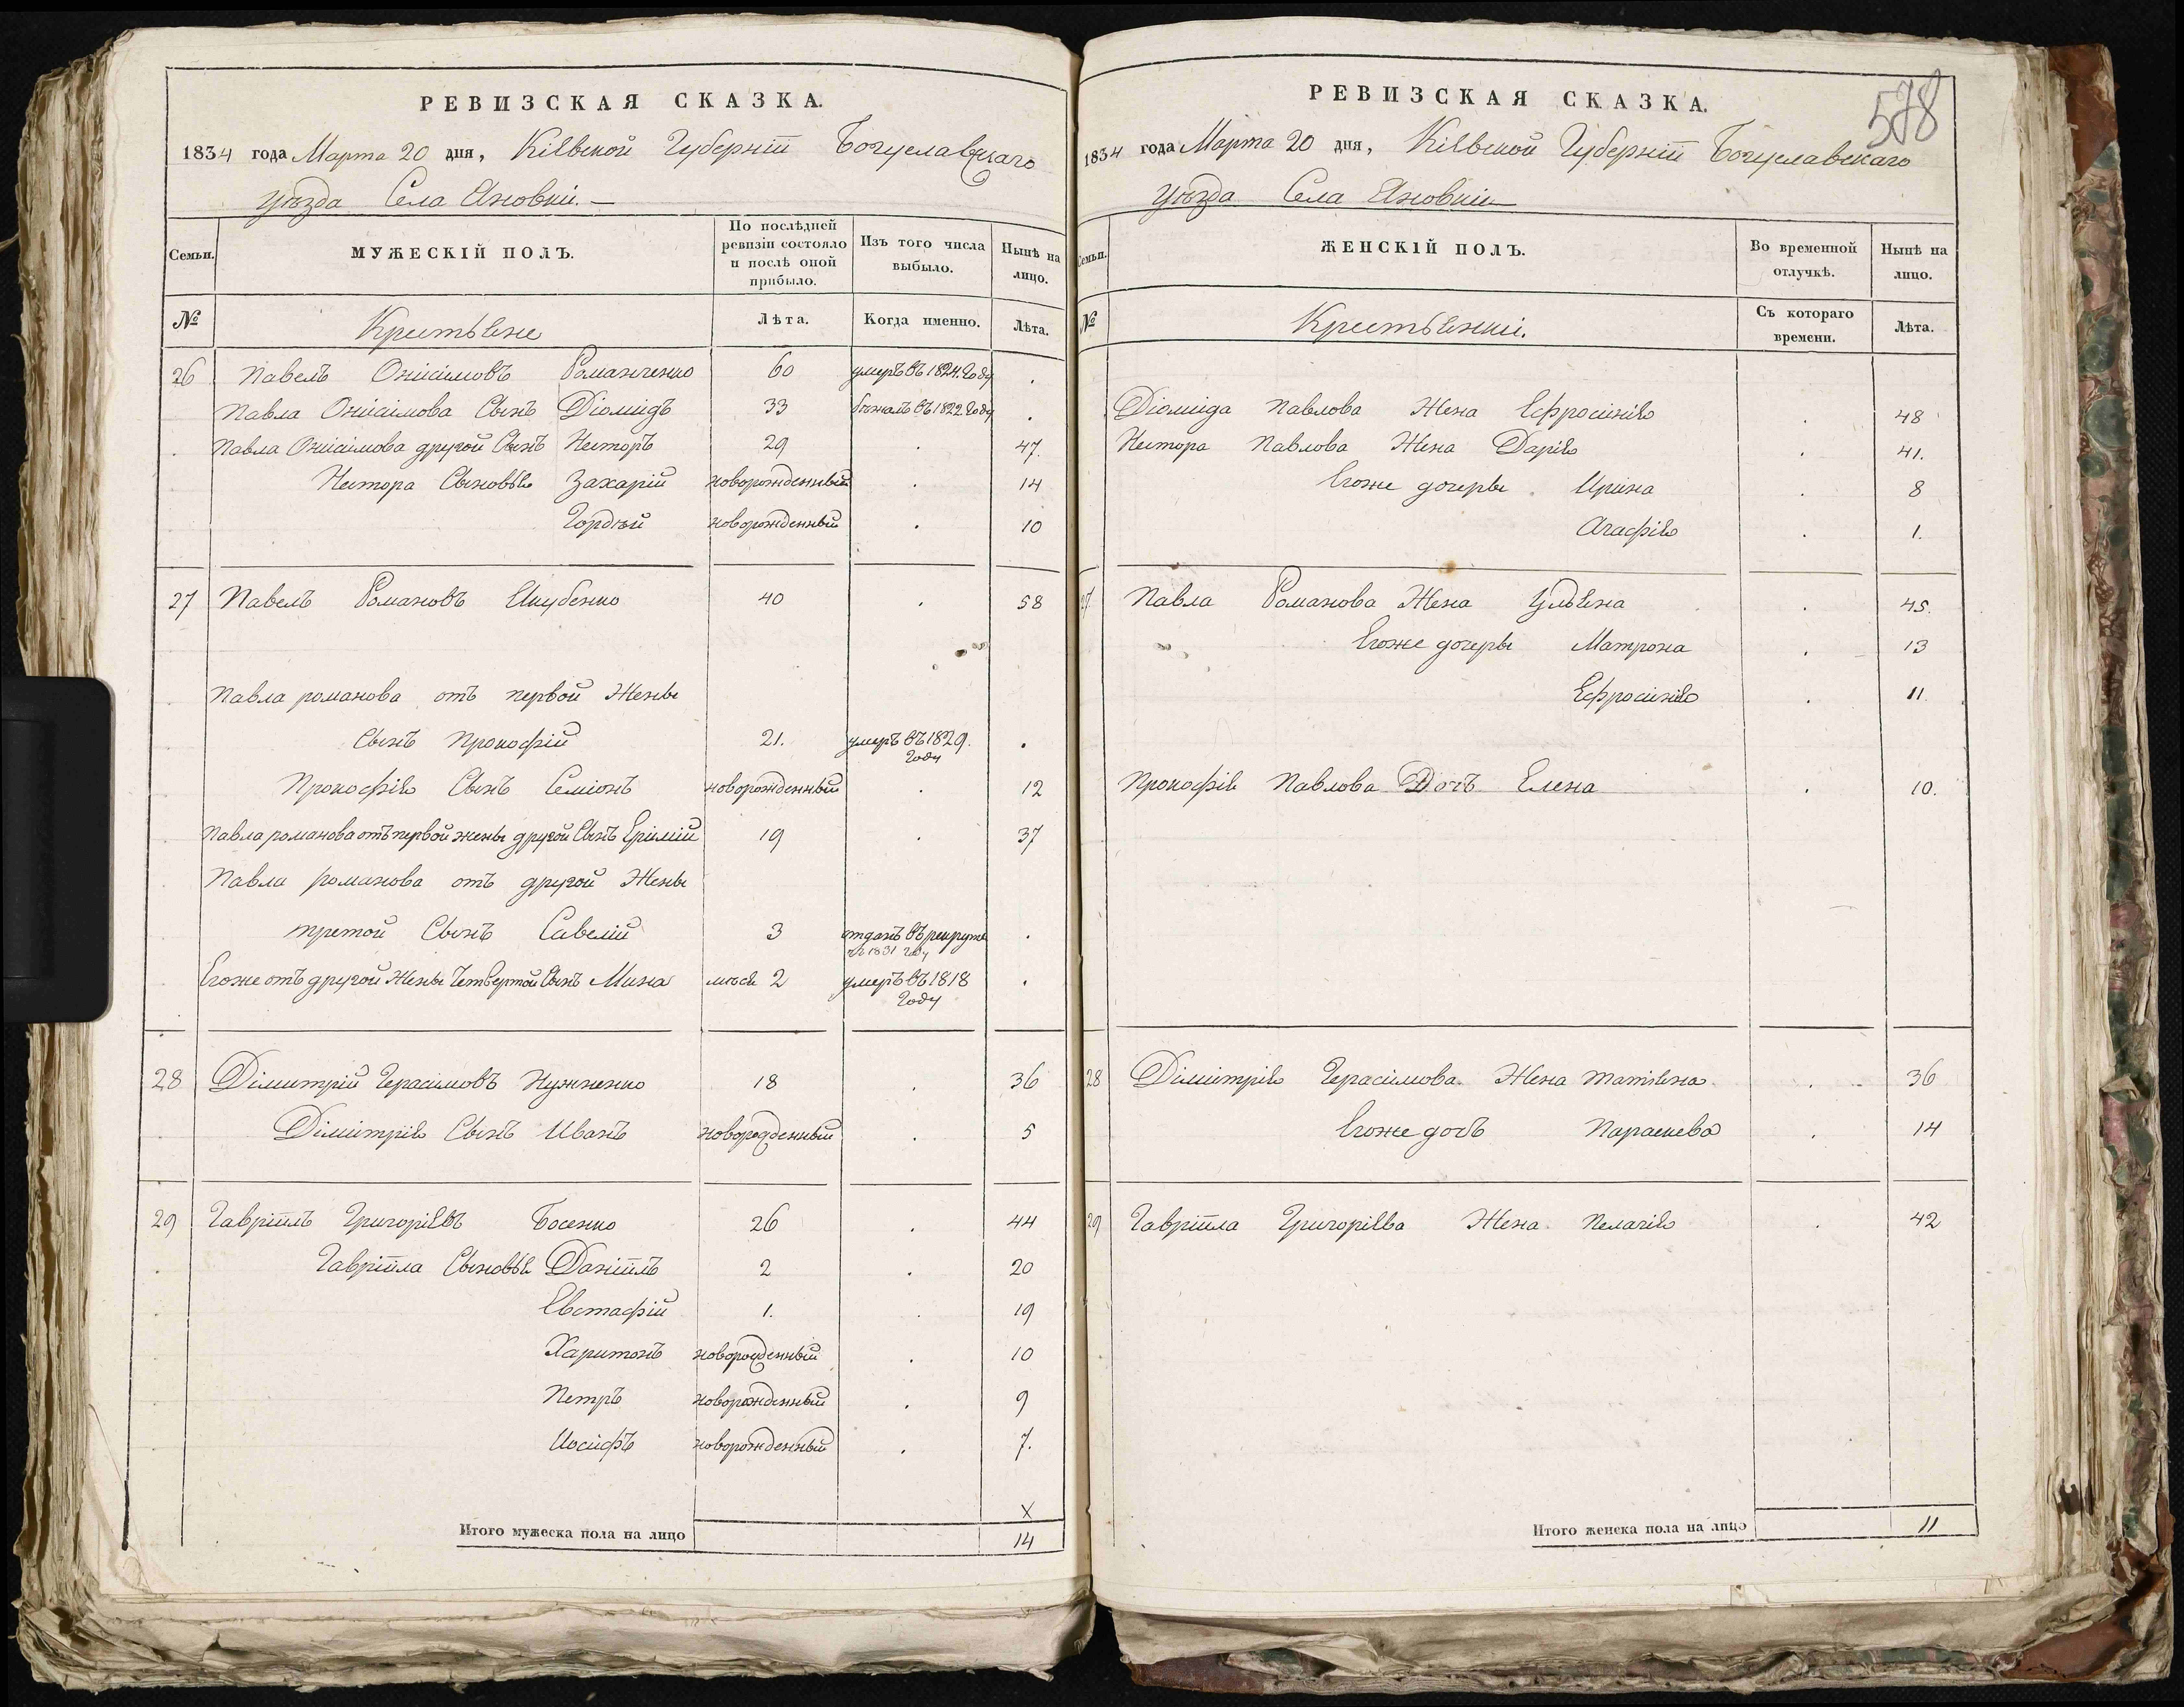 РЕВИЗСКАЯ СКАЗКА.
1834 года Марта 20 дня, Кіевской Губерніи Богуславскаго
уѣзда Села Яновки.
Семьи. МУЖЕСКІЙ ПОЛЪ. По послѣдней ревизіи состояло и послѣ оной прибыло. Изъ того числа выбыло. Нынѣ на лицо.
№ Крестьяне Лѣта. Когда именно. Лѣта.
26 Павелъ Онисимовъ Романченко 60 умеръ въ 1824. Году .
Павла Онисимова Сынъ Діомидъ 33 бѣжалъ въ 1822 Году .
Павла Онисимова другой Сынъ Несторъ 29 . 47.
Нестора Сыновья Захарій новорожденный . 14
Гордѣй новорожденный . 10
27 Павелъ Романовъ Якубенко 40 . 58
Павла романова отъ первой Жены
Сынъ Прокофій 21. умеръ въ 1829. Году .
Прокофія Сынъ Семіонъ новорожденный . 12
Павла романова отъ первой жены другой Сынъ Еримій 19 . 37
Павла романова отъ другой Жены
третой Сынъ Савелій 3 отданъ въ рекруты въ 1831 году .
Егоже отъ другой Жены Четвертой Сынъ Мина мѣся 2 умеръ въ 1818 Году .
28 Димитрій Герасимовъ Нужненко 18 . 36
Димитрія Сынъ Иванъ новорожденный . 5
29 Гавріилъ Григоріевъ Босенко 26 . 44
Гавріила Сыновья Даніилъ 2 . 20
Евстафій 1. . 19
Харитонъ новорожденный . 10
Петръ новорожденный . 9
Иосифъ новорожденный . 7.
X
Итого мужеска пола на лицо 14
578
РЕВИЗСКАЯ СКАЗКА.
1834 года Марта 20 дня, Кіевской Губерніи Богуславскаго
уѣзда Села Яновки
Семьи. ЖЕНСКІЙ ПОЛЪ. Во временной отлучкѣ. Нынѣ на лицо.
№ Крестьянки. Съ котораго времени. Лѣта.
Діомида Павлова Жена Ефросинія . 48
Нестора Павлова Жена Дарія . 41.
Егоже дочеры Ирина . 8
Агафія . 1.
27 Павла Романова Жена Ульяна . 45.
Егоже дочеры Матрона . 13
Ефросинія . 11.
Прокофія Павлова Дочъ Елена . 10.
28 Димитрія Герасимова Жена Татіяна . 36
Егоже дочъ Параскева . 14
29 Гавріила Григоріева Жена Пелагія . 42
Итого женска пола на лицо 11